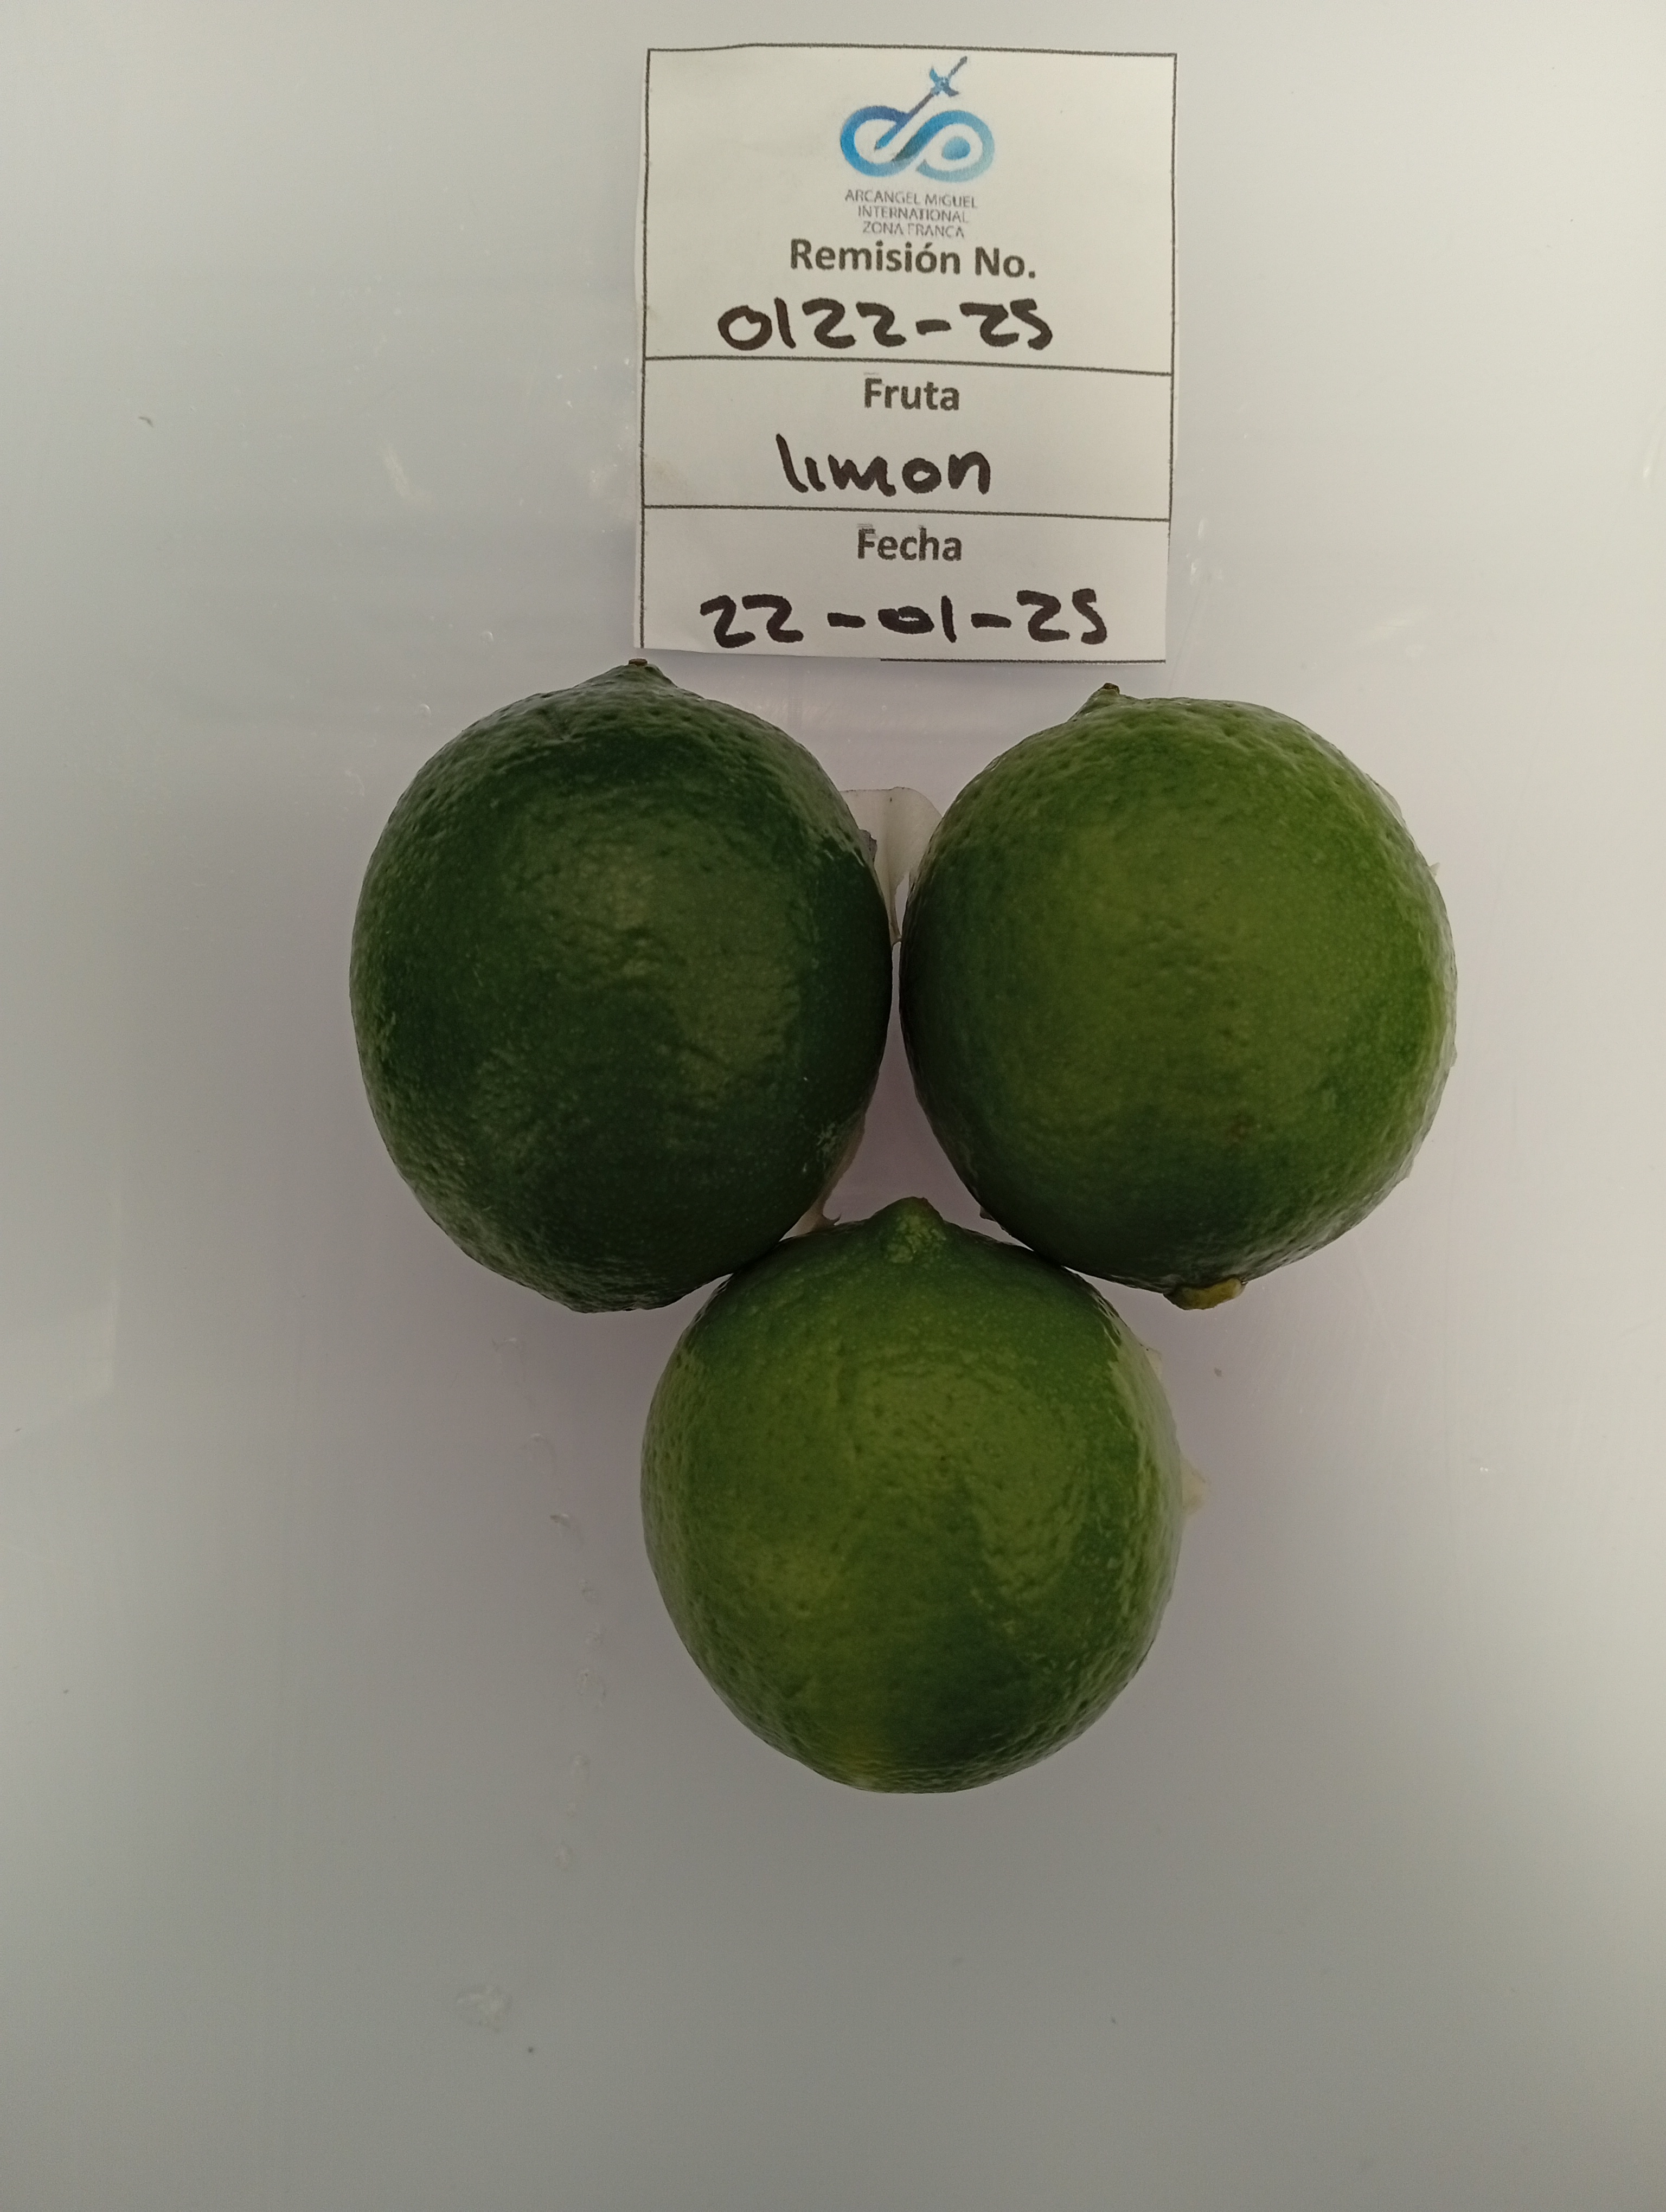 ARCANGEL MIGUEL
INTERNATIONAL
ZONA FRANCA
Remisión No.
0122-25
Fruta
limon
Fecha
22-01-25